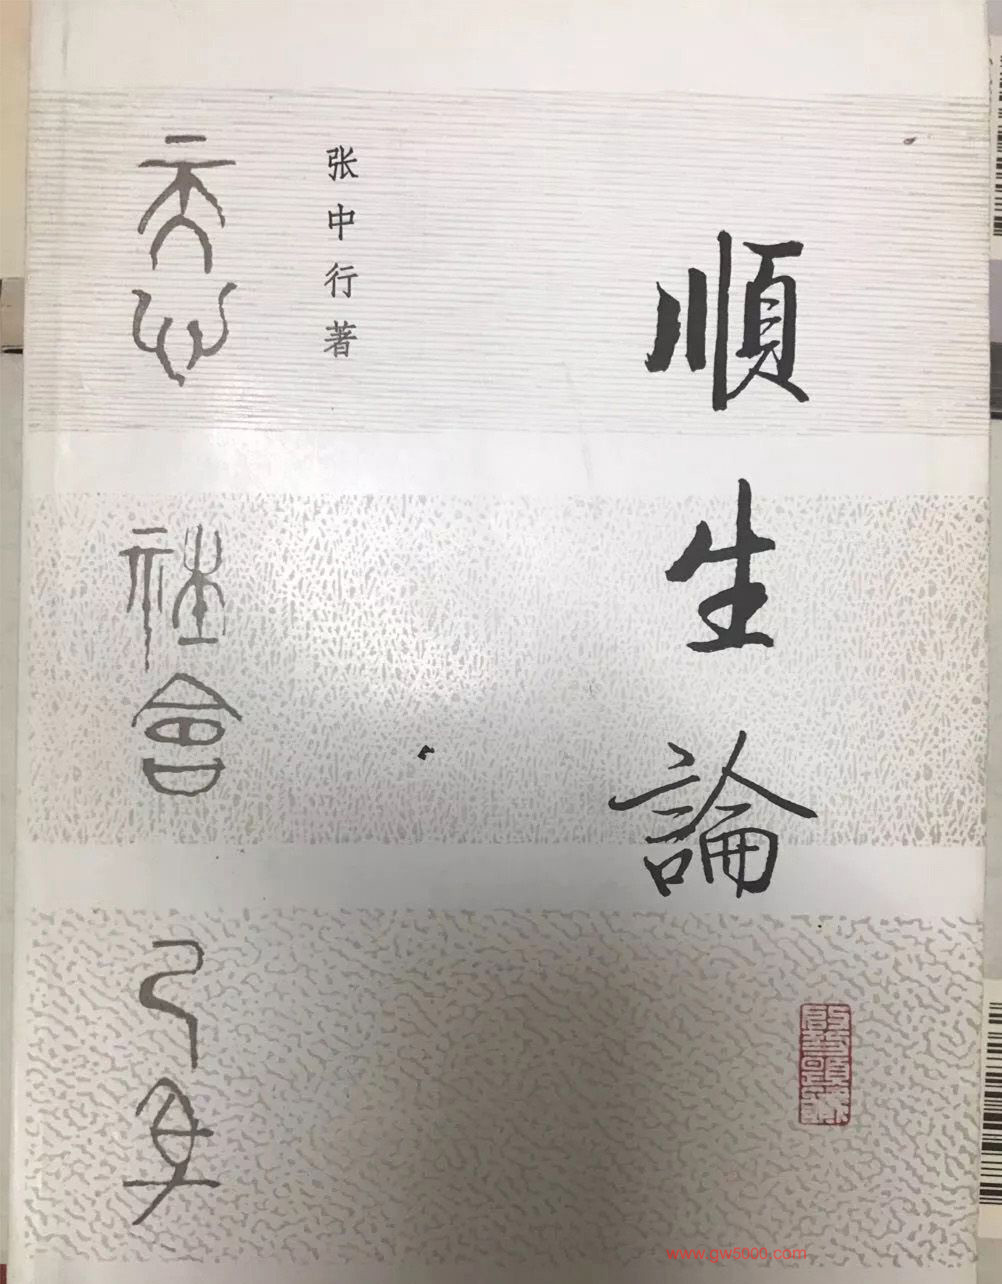 順生論
张中行著
天心
社會
己身
www.gw5000.com